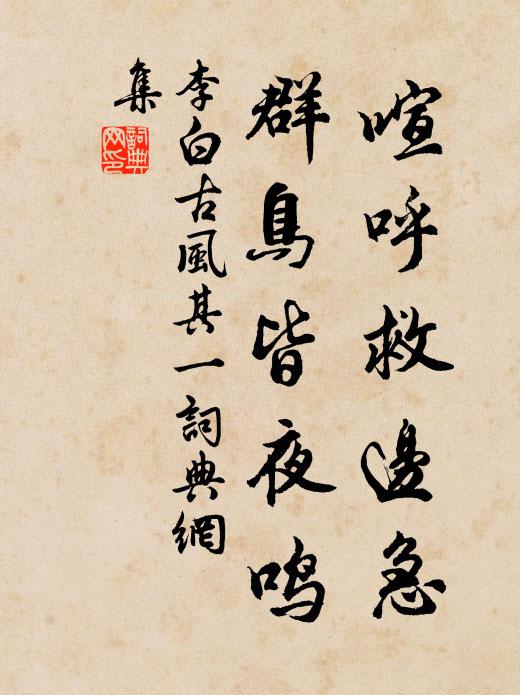 喧呼救邊急
群鳥皆夜鸣
李白古風其一詞典網
集
詞典
网印